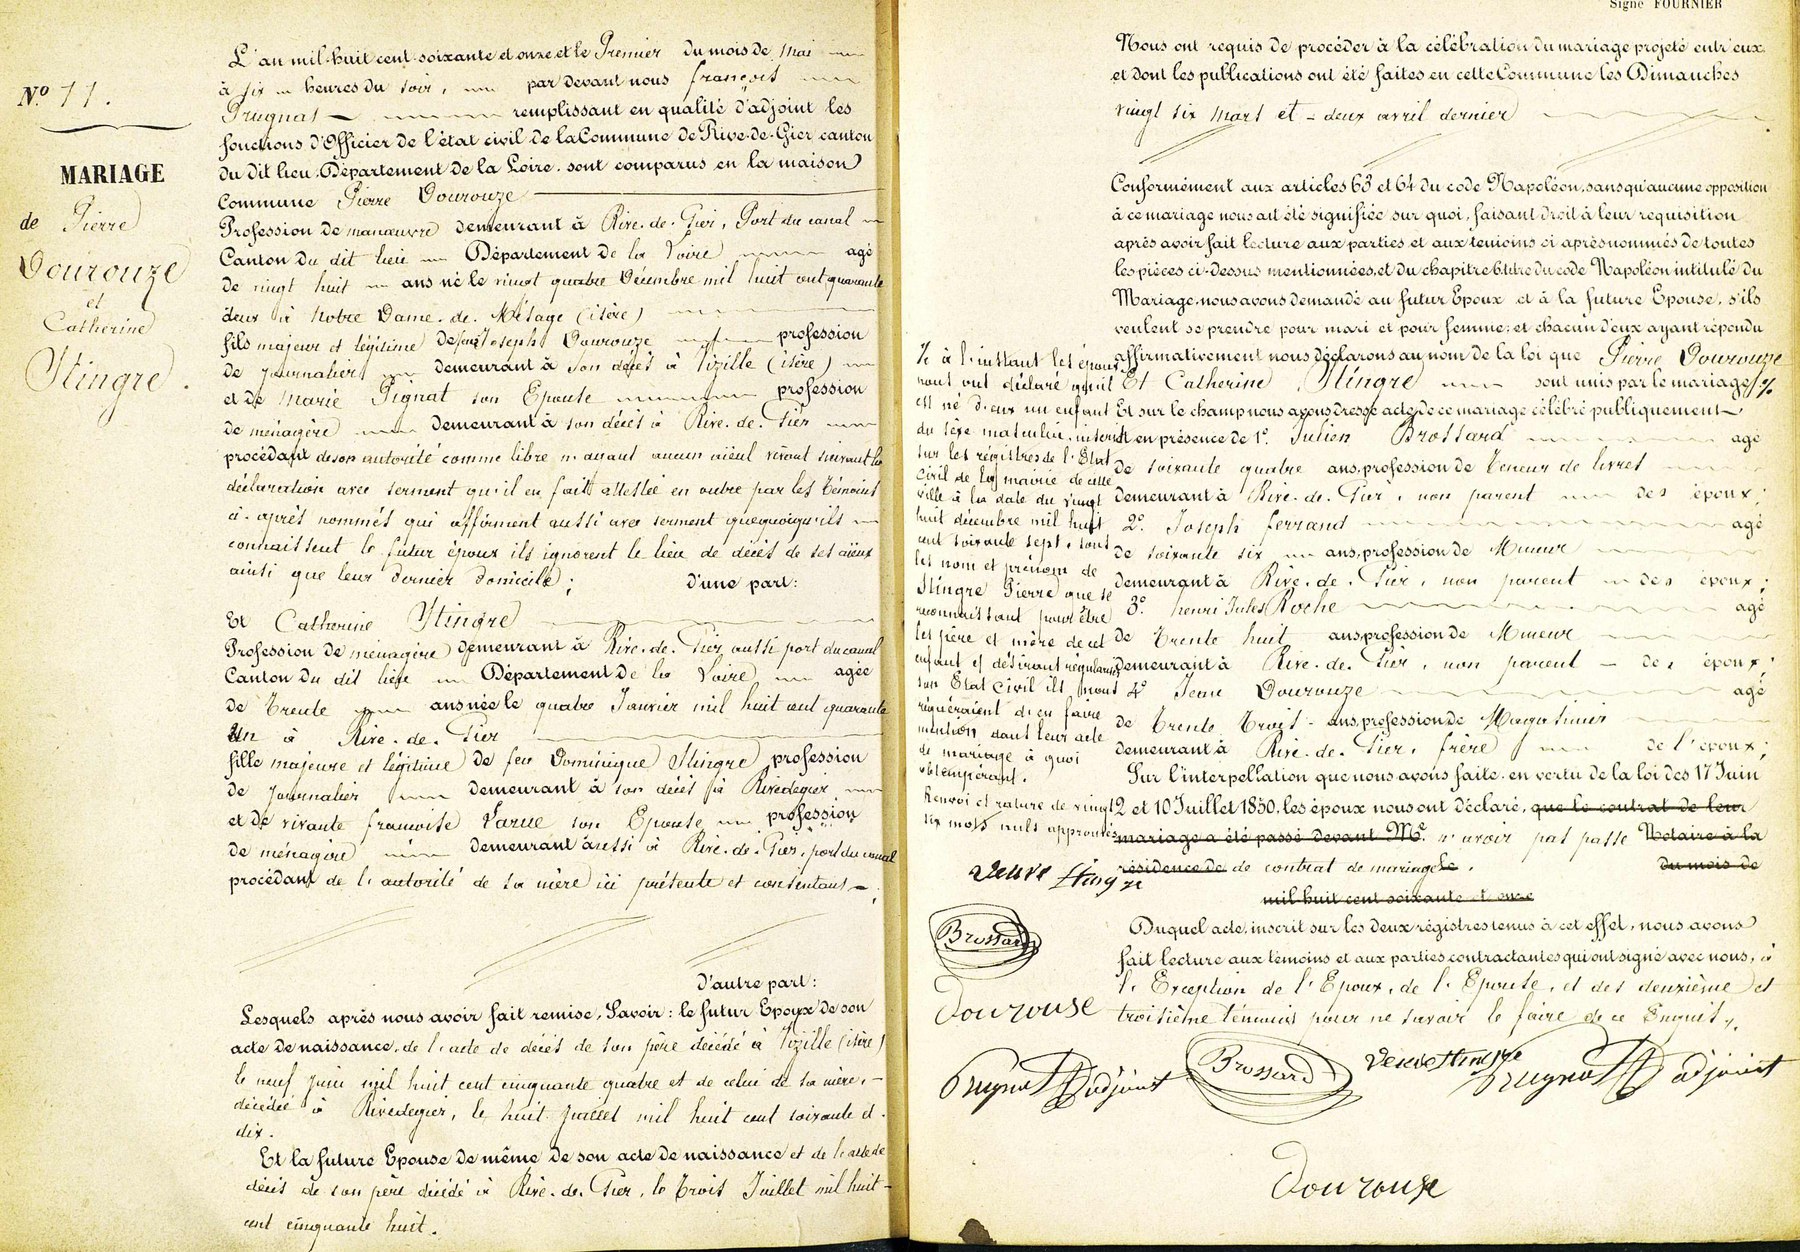 Nº 11.
MARIAGE
de Pierre
Dourouze
et
Catherine
Stingre.
L'an mil-huit cent-soixante et onze et le Premier du mois de Mai
à six heures du soir, par devant nous françois
Prugnat remplissant en qualité d'adjoint les
fonctions d'Officier de l'état civil de la Commune de Rive-de-Gier canton
du dit lieu. Département de la Loire. sont comparus en la maison
Commune Pierre Dourouze
Profession de manœuvre demeurant à Rive-de-Gier, Port du canal
Canton du dit lieu Département de la Loire agé
de vingt huit ans né le vingt quatre Décembre mil huit cent quarante
deux à Notre Dame-de-Mésage (isère)
fils majeur et légitime de feu Joseph Dourouze profession
de journalier demeurant à son décès à Vizille (isère)
et de Marie Pignat son Epouse profession
de ménagère demeurant à son décès à Rive-de-Gier
procédant de son autorité comme libre n'ayant aucun aïeul vivant suivant la
déclaration avec serment qu'il en fait attestée en outre par les témoins
ci-après nommés qui affirment aussi avec serment que quoiqu'ils
connaissent le futur époux ils ignorent le lieu de décès de ses aïeux
ainsi que leur dernier domicile; d'une part:
Et Catherine Stingre
Profession de ménagère demeurant à Rive-de-Gier aussi port du canal
Canton du dit lieu Département de la Loire agée
de Trente ans née le quatre Janvier mil huit cent quarante
un à Rive-de-Gier
fille majeure et légitime de feu Dominique Stingre profession
de journalier demeurant à son décès à Rivedegier
et de vivante françoise Larue son Epouse profession
de ménagère demeurant aussi à Rive-de-Gier, port du canal
procédant de l'autorité de sa mère ici présente et consentante;
d'autre part:
Lesquels après nous avoir fait remise, Savoir: le futur Epoux de son
acte de naissance, de l'acte de décès de son père décédé à Vizille (isère)
le neuf Juin mil huit cent cinquante quatre et de celui de sa mère,
décédée à Rivedegier, le huit Juillet mil huit cent soixante et
dix.
Et la future Epouse de même de son acte de naissance et de l'acte de
décès de son père décédé à Rive-de-Gier, le trois Juillet mil huit
cent cinquante huit.
Signé FOURNIER
Nous ont requis de procéder à la célébration du mariage projeté entr'eux
et dont les publications ont été faites en cette Commune les Dimanches
vingt six mars et deux avril dernier
Conformément aux articles 63 et 64 du code Napoléon, sans qu'aucune opposition
à ce mariage nous ait été signifiée sur quoi, faisant droit à leur requisition
après avoir fait lecture aux parties et aux temoins ci après nommés de toutes
les pièces ci-dessus mentionnées, et du chapitre 6 titre du code Napoléon intitulé du
Mariage, nous avons demandé au futur Epoux et à la future Epouse, s'ils
veulent se prendre pour mari et pour femme; et chacun d'eux ayant répondu
affirmativement nous déclarons au nom de la loi que Pierre Dourouze
Et Catherine Stingre sont unis par le mariage %
Et sur le champ nous avons dressé acte de ce mariage célébré publiquement
et en présence de 1º. Julien Brossard agé
de soixante quatre ans, profession de Teneur de livres
demeurant à Rive-de-Gier, non parent des époux;
2º. Joseph ferrand agé
de soixante six ans, profession de Mineur
demeurant à Rive-de-Gier, non parent des époux;
3º. henri Jules Roche agé
de Trente huit ans, profession de Mineur
demeurant à Rive-de-Gier, non parent des époux;
4º Jean Dourouze agé
de Trente Trois ans, profession de Magasinier
demeurant à Rive-de-Gier, frère de l'époux;
Sur l'interpellation que nous avons faite, en vertu de la loi des 17 Juin
2 et 10 Juillet 1850, les époux nous ont déclaré, que le contrat de leur
mariage a été passé devant Me. n'avoir pas passé Notaire à la
résidence de de contrat de mariage le. du mois de
mil-huit cent soixante et onze
Duquel acte, inscrit sur les deux régistres tenus à cet effet, nous avons
fait lecture aux témoins et aux parties contractantes qui ont signé avec nous, à
l'Exception de l'Epoux, de l'Epouse, et des deuxième et
troisième témoins pour ne savoir le faire de ce Enquis.
% à l'instant les époux
nous ont déclaré qu'il
est né d'eux un enfant
du sexe masculin, inscrit
sur les régistres de l'Etat
civil de la mairie de cette
ville à la date du vingt
huit décembre mil huit
cent soixante sept, sous
les nom et prénom de
Stingre Pierre que se
reconnaissant pour être
les père et mère de cet
enfant et désirant régulariser
son Etat Civil ils nous
requéraient d'en faire
mention dans leur acte
de mariage à quoi
obtempérant.
Renvoi et rature de vingt
six mots nuls approuvés
Veuve Stingre
Brossard
Dourouse
Prugnat adjoint
Brossard
Veuve Stingre
Prugnat adjoint
Dourouse